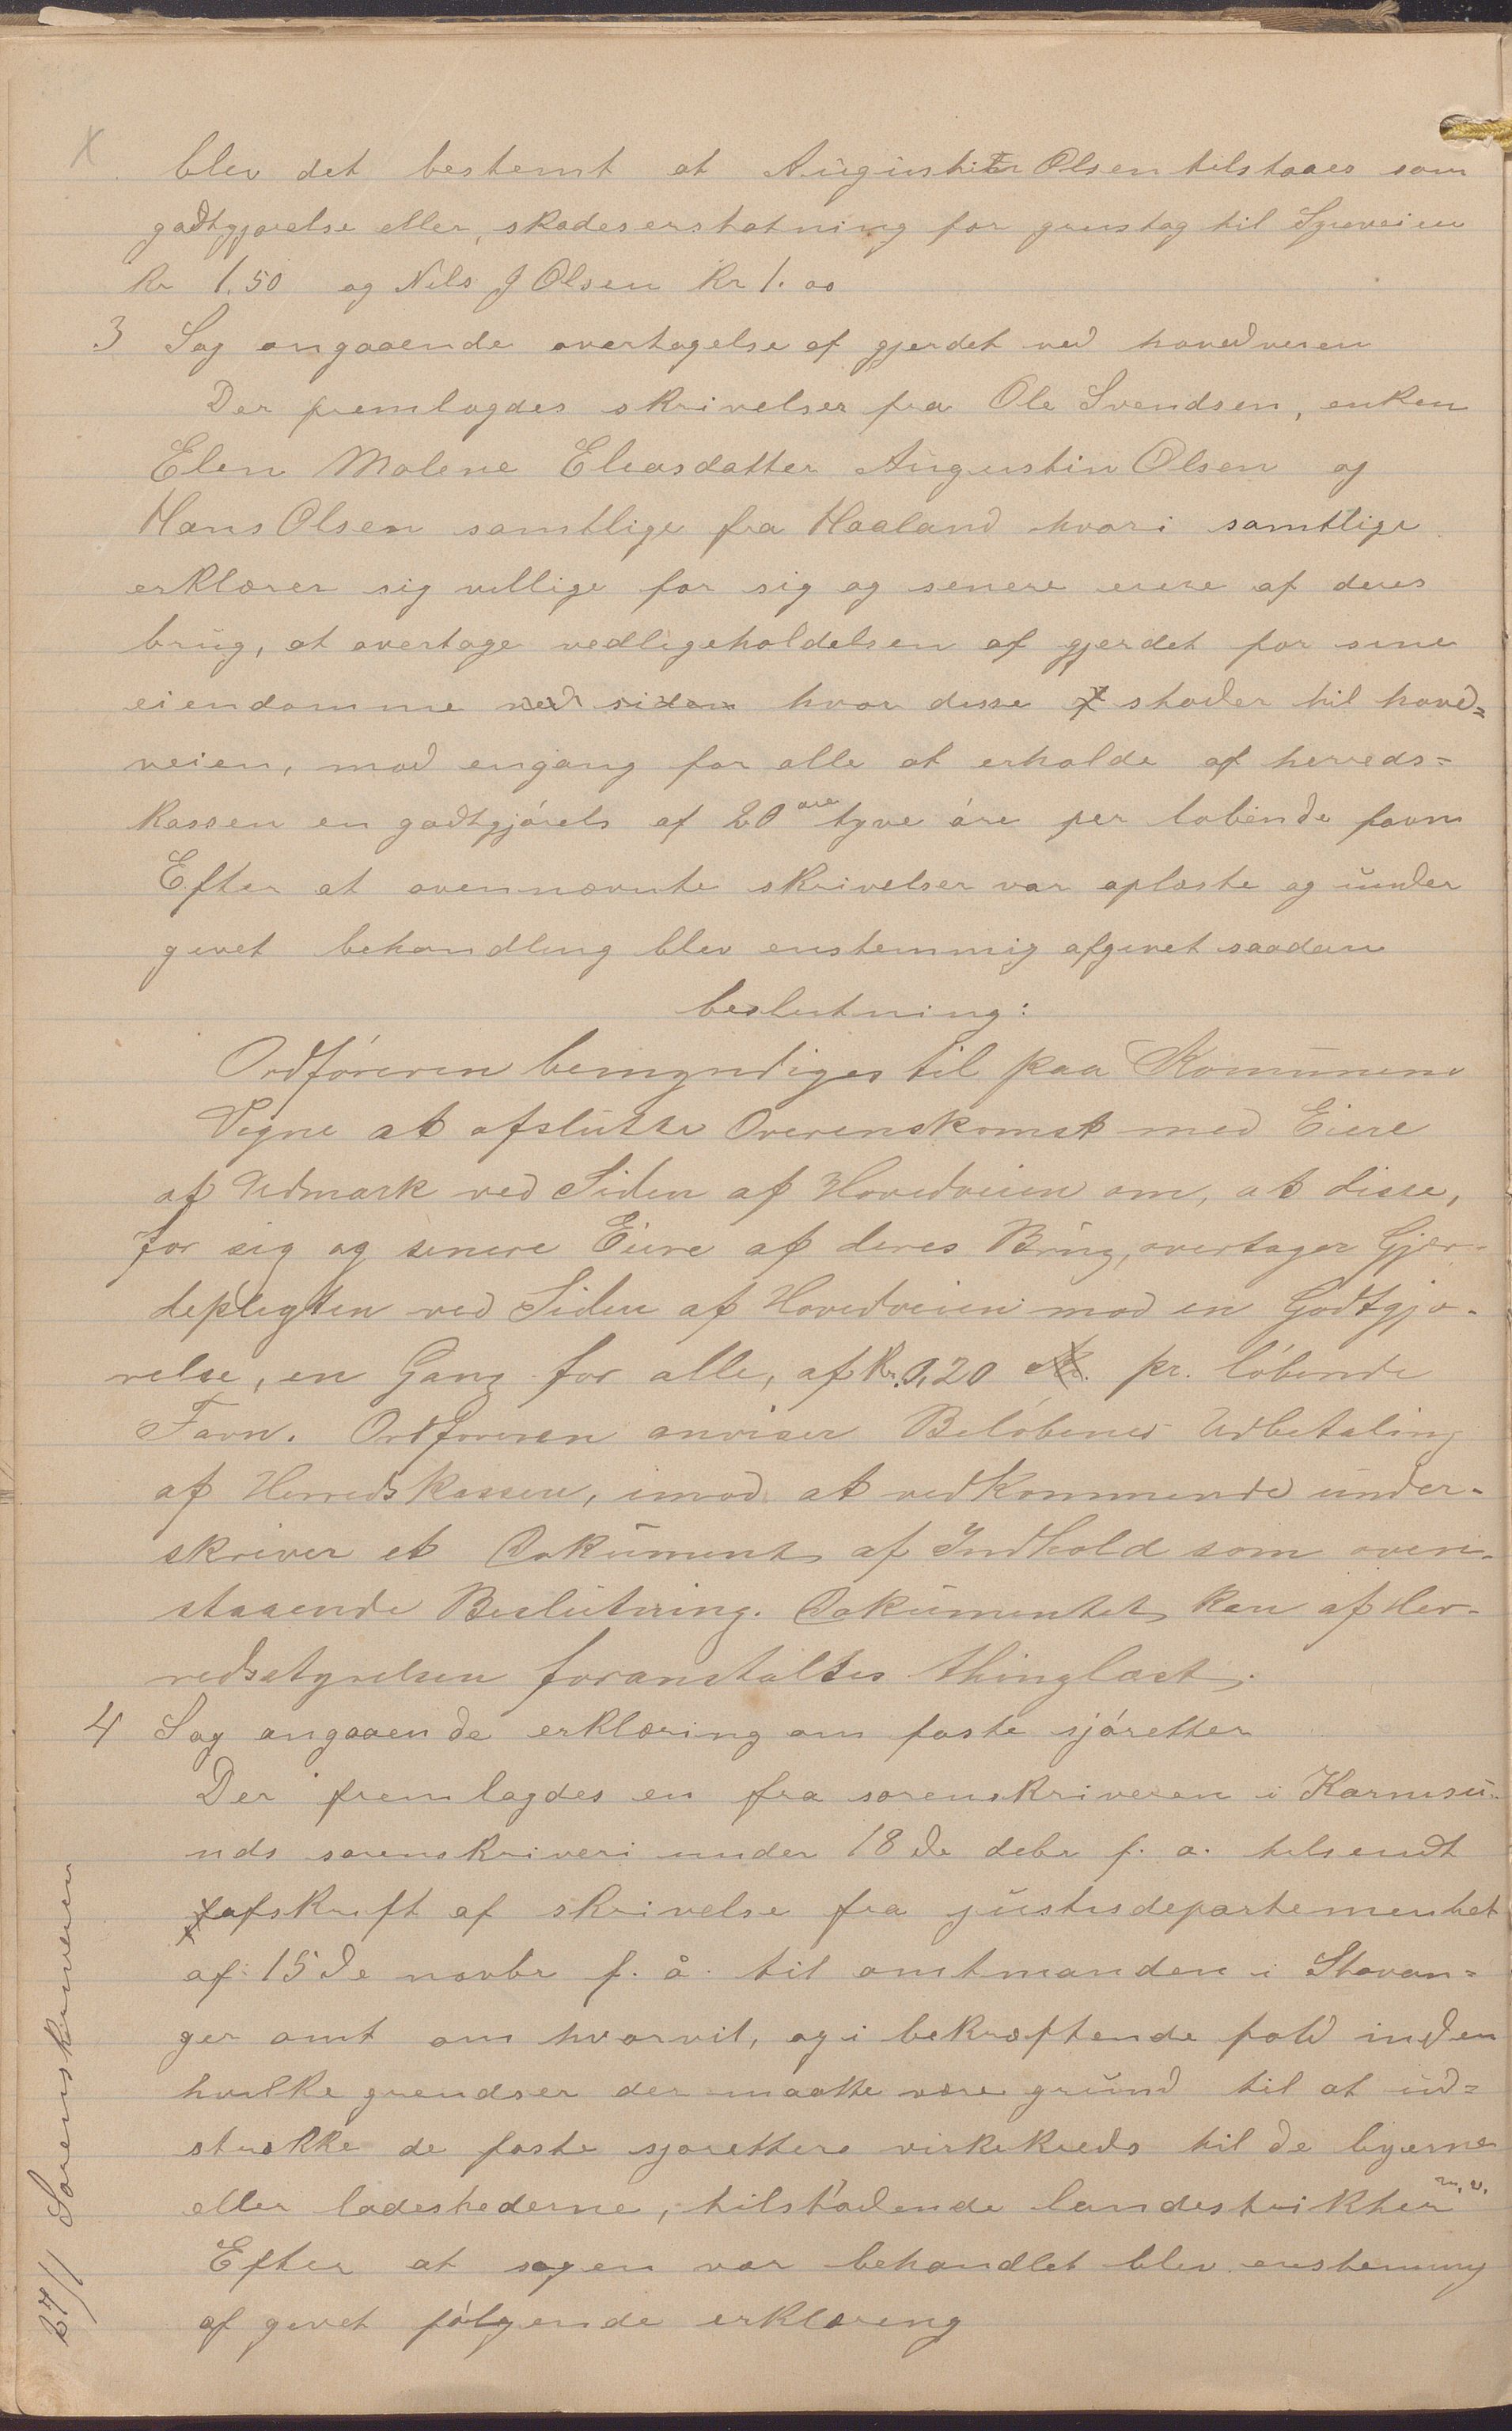 blev det bestemt at Augustin Olsen tilstaaes som
godtgjørelse eller, skadeserstatning for grustag til Syreveien
Kr 1.50 og Nils J Olsen Kr 1.00
3 Sag angaaende overtagelse af gjerdet ved hovedveien
Der fremlagdes skrivelser fra Ole Svendsen, enken
Elen Malene Eleasdatter Augustin Olsen og
Hans Olsen samtlige fra Haaland hvori samtlige
erklærer sig villige for sig og senere eiere af deres
brug, at overtage vedligeholdelsen af gjerdet for sine
eiendomme ved siden hvor desse støder til hoved=
veien, mod engang for alle at erholde af herreds=
kassen en godtgjørels af 20 øre tyve øre per løbende favn
Efter at ovennævnte skrivelser var oplæste og under
givet behandling blev enstemmig afgivet saadan
beslutning:
Ordføreren bemyndiges til paa Kommunens
Vegne at afslutte Overenskomst med Eiere
af Udmark ved Siden af Hovedveien om, at disse,
for sig og senere Eiere af deres Brug, overtager Gjær-
depligten ved Siden af Hovedveien mod en Godtgjø-
relse, en Gang for alle, af Kr. 0,20 pr. løbende
Favn. Ordføreren anviser Beløbenes Udbetaling
af Herredskassen, imod at vedkommende under-
skriver et Dokument af Indhold som oven-
staaende Beslutning. Dokumentet kan af Her-
redsstyrelsen foranstaltes thinglæst.
4 Sag angaaende erklæring om faste sjøretter
Der fremlagdes en fra sorenskriveren i Karmsu-
nds sorenskriveri under 18de debr f. a. tilsendt
afskrift af skrivelse fra justisdepartementet
af 15de novbr f. å. til amtmanden i Stavan=
ger amt om hvorvit, og i bekræftende fald inden
hvilke grendser der maatte være grund til at ud=
strække de faste sjøretters virkekreds til de byerne
eller ladestederne, tilstødende landestrikter m.v.
Efter at sagen var behandlet blev enstemmig
af givet følgende erklæring
27/1 Sorenskriveren